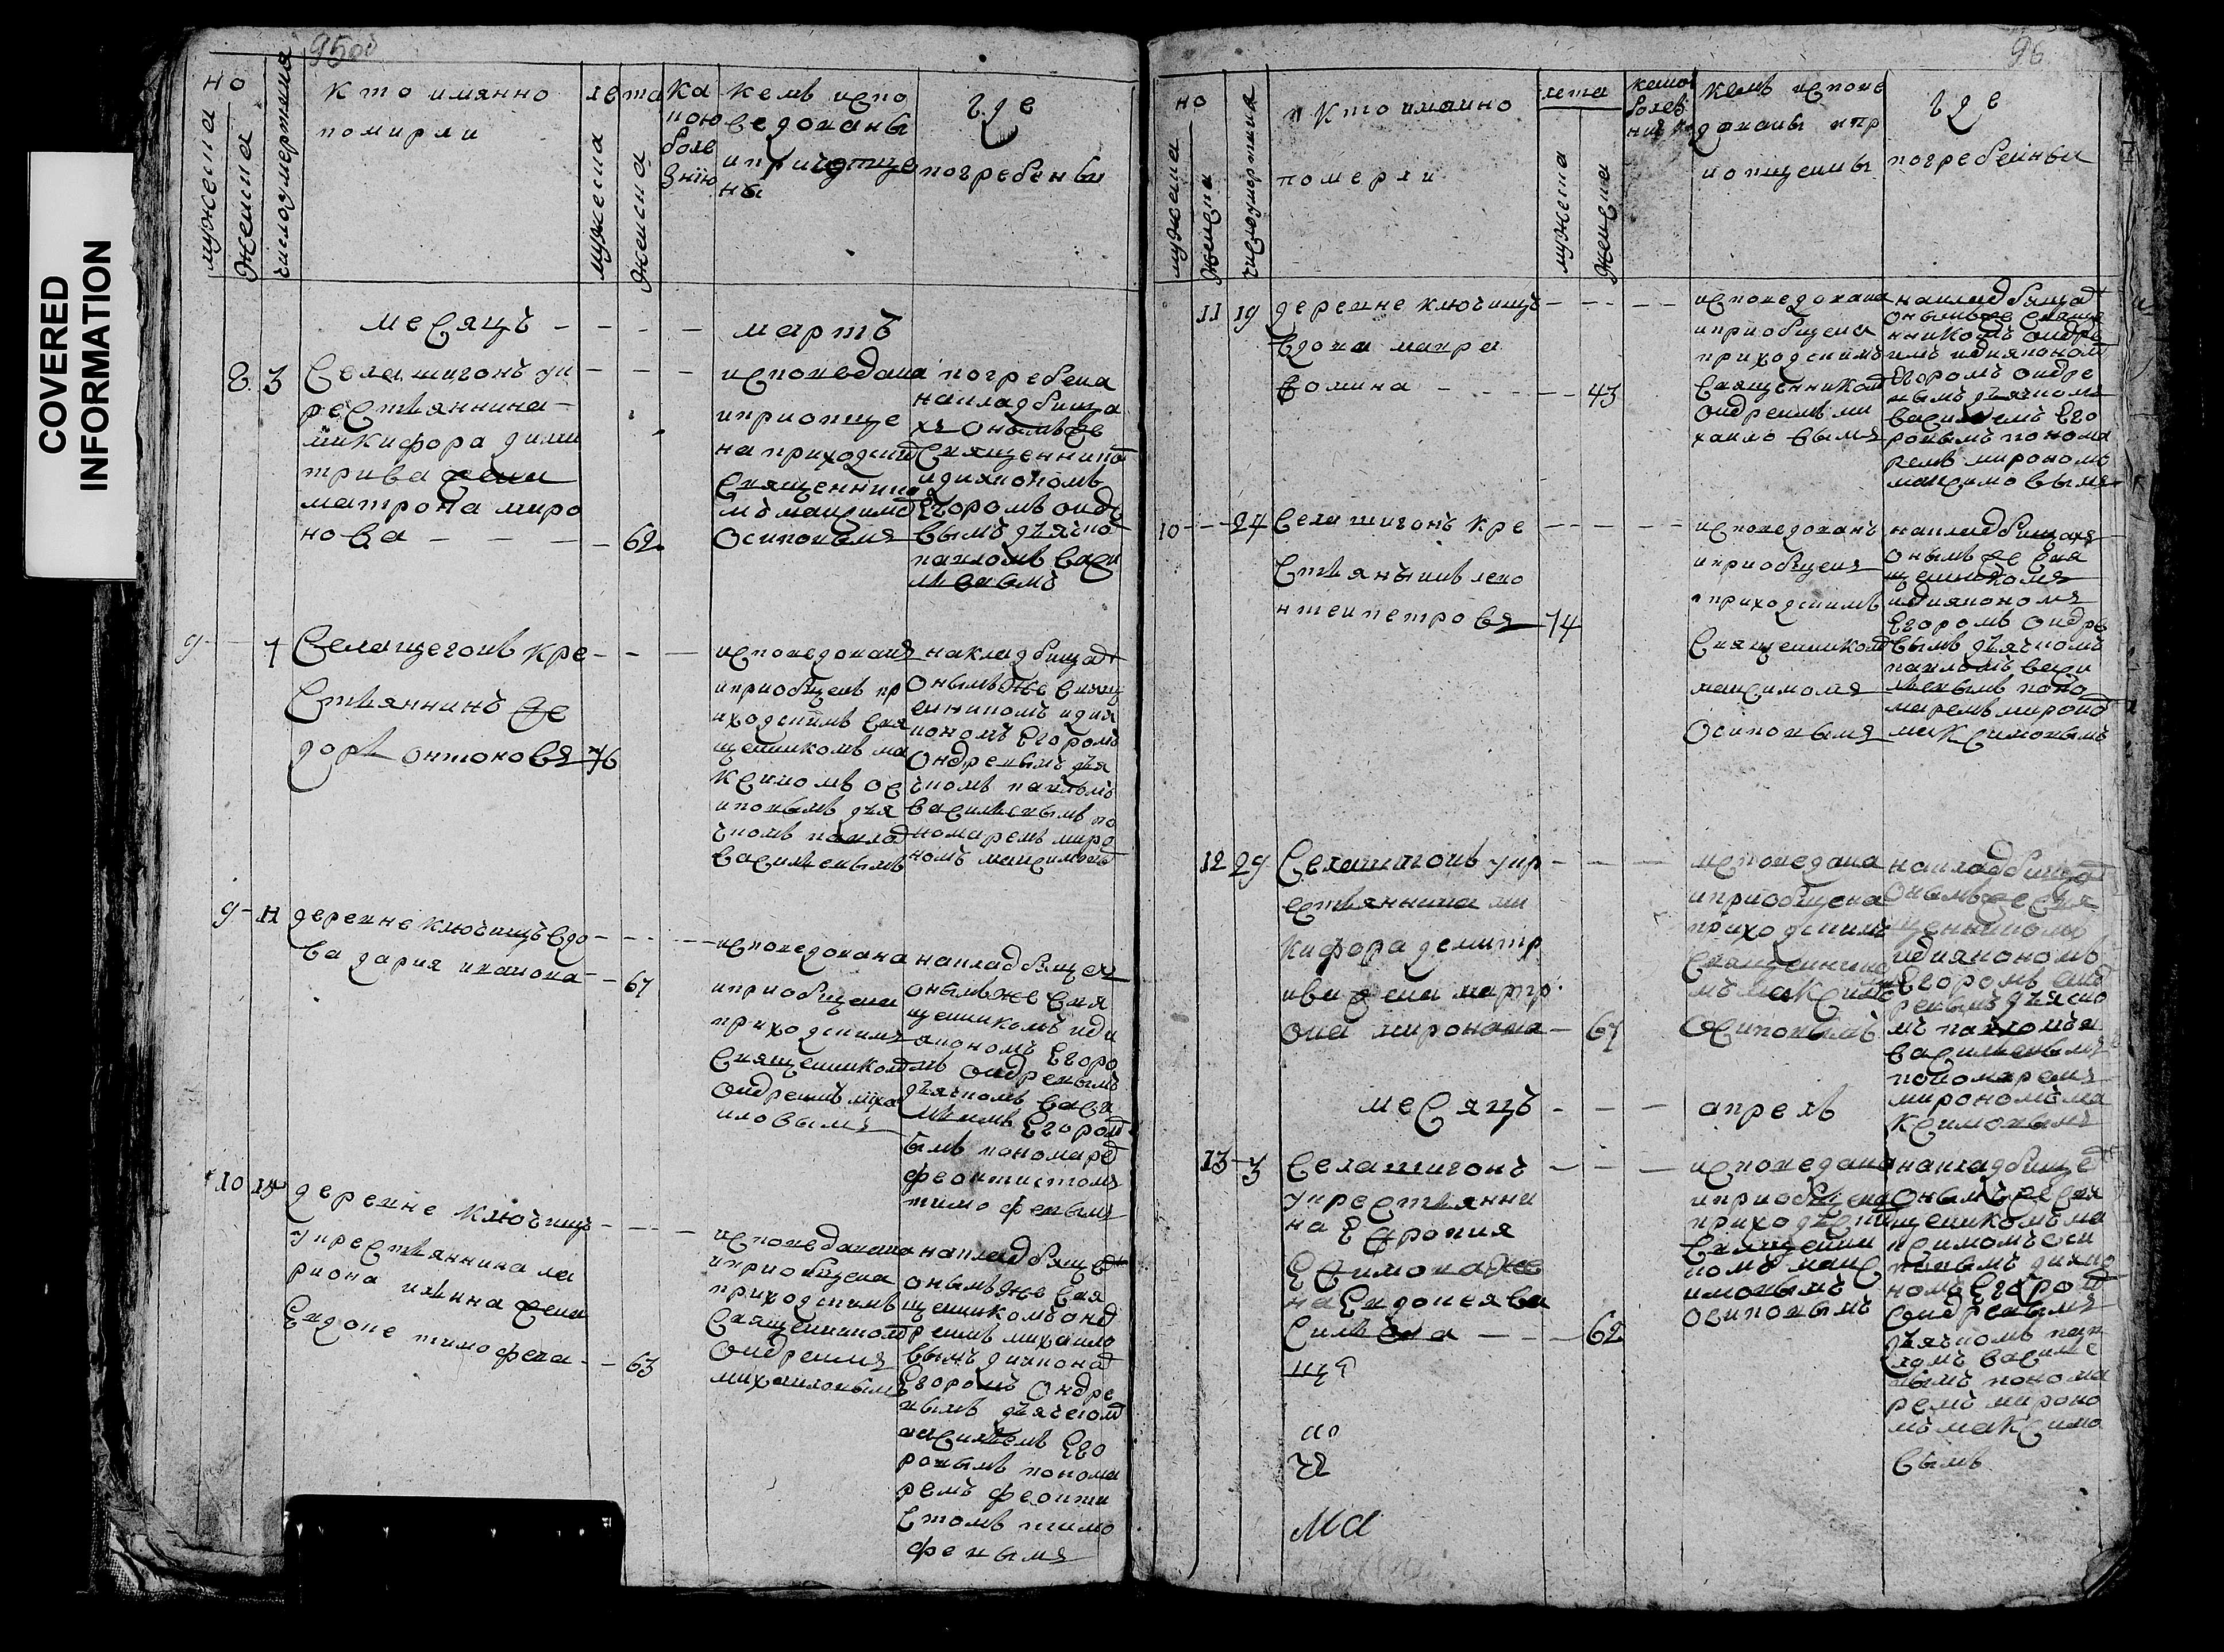 COVERED
INFORMATION
95об
но
мужеска
женска
число умертвия
кто имянно
помирли
лета
мужеска
женска
ка
кою
боле
знию
кемъ испо
ведованы
и приобще
ны
где
погребены
месяцъ - - - - мартъ
8 3
Села шигонъ у к
рестьяннина
никифора дими
трива жена
матрона миро
нова - - - 62
исповедана
и приопще
на приходски
священнико
мъ максимо
Осиповымъ
погребена
на кладбища
хъ Онымъ же
Священнико
и диякономъ
Егоромъ онд
вымъ дьячко
павломъ васи
левымъ
9 7
Села щегонъ кре
Стьяннинъ Фе
доръ онтоновъ 76
исповедонъ
и приобщенъ пр
иходскимъ свя
щенникомъ ма
ксимомъ ос
иповымъ дья
чкомъ павло
Василевымъ
на кладбищах
Онымъ же свящ
енникомъ и дия
кономъ Егоромъ
Ондревымъ дья
чкомъ павлымъ
василевымъ по
номаремъ миро
номъ максимов
9 11
деревне ключищъ вдо
ва дария иванова 67
исповедована
и приобщена
приходскимъ
Священником
Ондреимъ миха
иловымъ
на кладбищах
онымъ же свя
щенникомъ и ди
акономъ Егоро
мъ Ондревымъ
дьячкомъ васи
лемъ Егоров
ымъ пономаре
феоктистомъ
тимофевымъ
10
деревне ключищъ
у крестьяннина ла
риона ильина жена
Евдоке тимофева - 63
исповедована
и приобщена
приходскимъ
Священником
Ондреимъ
михаиловымъ
на кладбищех
онымъ же свя
щенникомъ онд
реимъ михаило
вымъ дияконо
Егоромъ Ондре
вымъ дьячком
василемъ Его
ровымъ понома
ремъ феокти
стомъ тимо
февымъ
96
но
мужеска
женска
число умертвия
Кто имянно
померли
лета
мужеска
женска
кемъ испове
дованы и пр
иопщены
где
погребенны
11 19
деревне ключищъ
вдова мавра
Фомина - - - 43
исповедована
и приобщена
приходскимъ
Священником
Ондреимъ ми
хаиловымъ
на кладбищах
Онымъ же свяще
нникомъ ондре
имъ и дияконом
Егоромъ ондре
вымъ дьячкомъ
василемъ Его
ровымъ понома
ремъ мирономъ
максимовымъ
10 24
Села шигонъ кре
Стьянынъ лево
нтеи петровъ 74
исповедованъ
и приобщенъ
приходскимъ
Священником
максимомъ
Осиповымъ
на кладбищахъ
Онымъ же свя
щенникомъ
и дияконом
Егоромъ Ондре
вымъ дьячкомъ
павломъ васи
левымъ поно
маремъ мироно
максимовымъ
12 29
Села шигонъ у кр
естьяннина ни
кифора демитр
ива жена матр
она миронава - 67
исповедана
и приобщена
приходскимъ
Священнико
мъ максимо
Осиповымъ
на кладбищах
Онымъ же свя
щенникомъ
и дияконом
Егоромъ онд
ревымъ дьячко
мъ павломъ
василевымъ
пономаремъ
мирономъ ма
ксимовымъ
месяцъ - - - апрель
13 3
Села шигонъ
у крестьянни
на Ефропия
Ефимова же
на Евдокея ва
Силева - - - 62
исповедана
и приобщена
приходски
Священни
комъ макс
имомъ
осиповымъ
на кладбище
Онымъ же свя
щенникомъ ма
ксимомъ оси
повымъ дияко
номъ Егоро
Ондревымъ
дьячкомъ пав
ломъ василе
вымъ понома
ремъ мироно
мъ максимо
вымъ
Ма